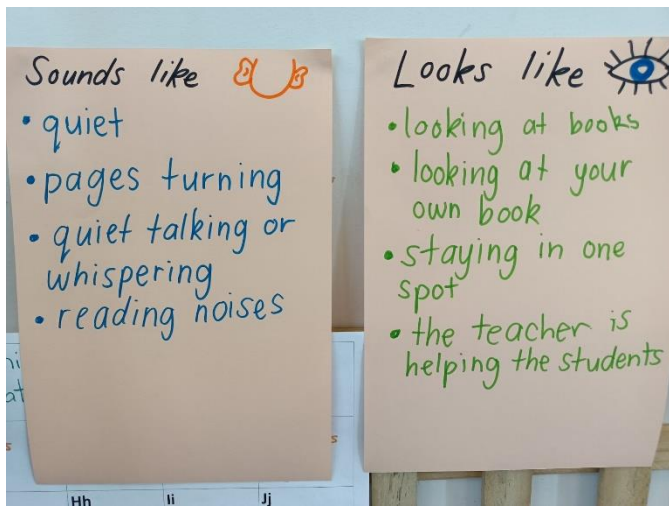 Sounds like
• quiet
• pages turning
• quiet talking or
whispering
• reading noises
Looks like
• looking at books
• looking at your
own book
• staying in one
spot
• the teacher is
helping the students
Hh
Ii
Jj